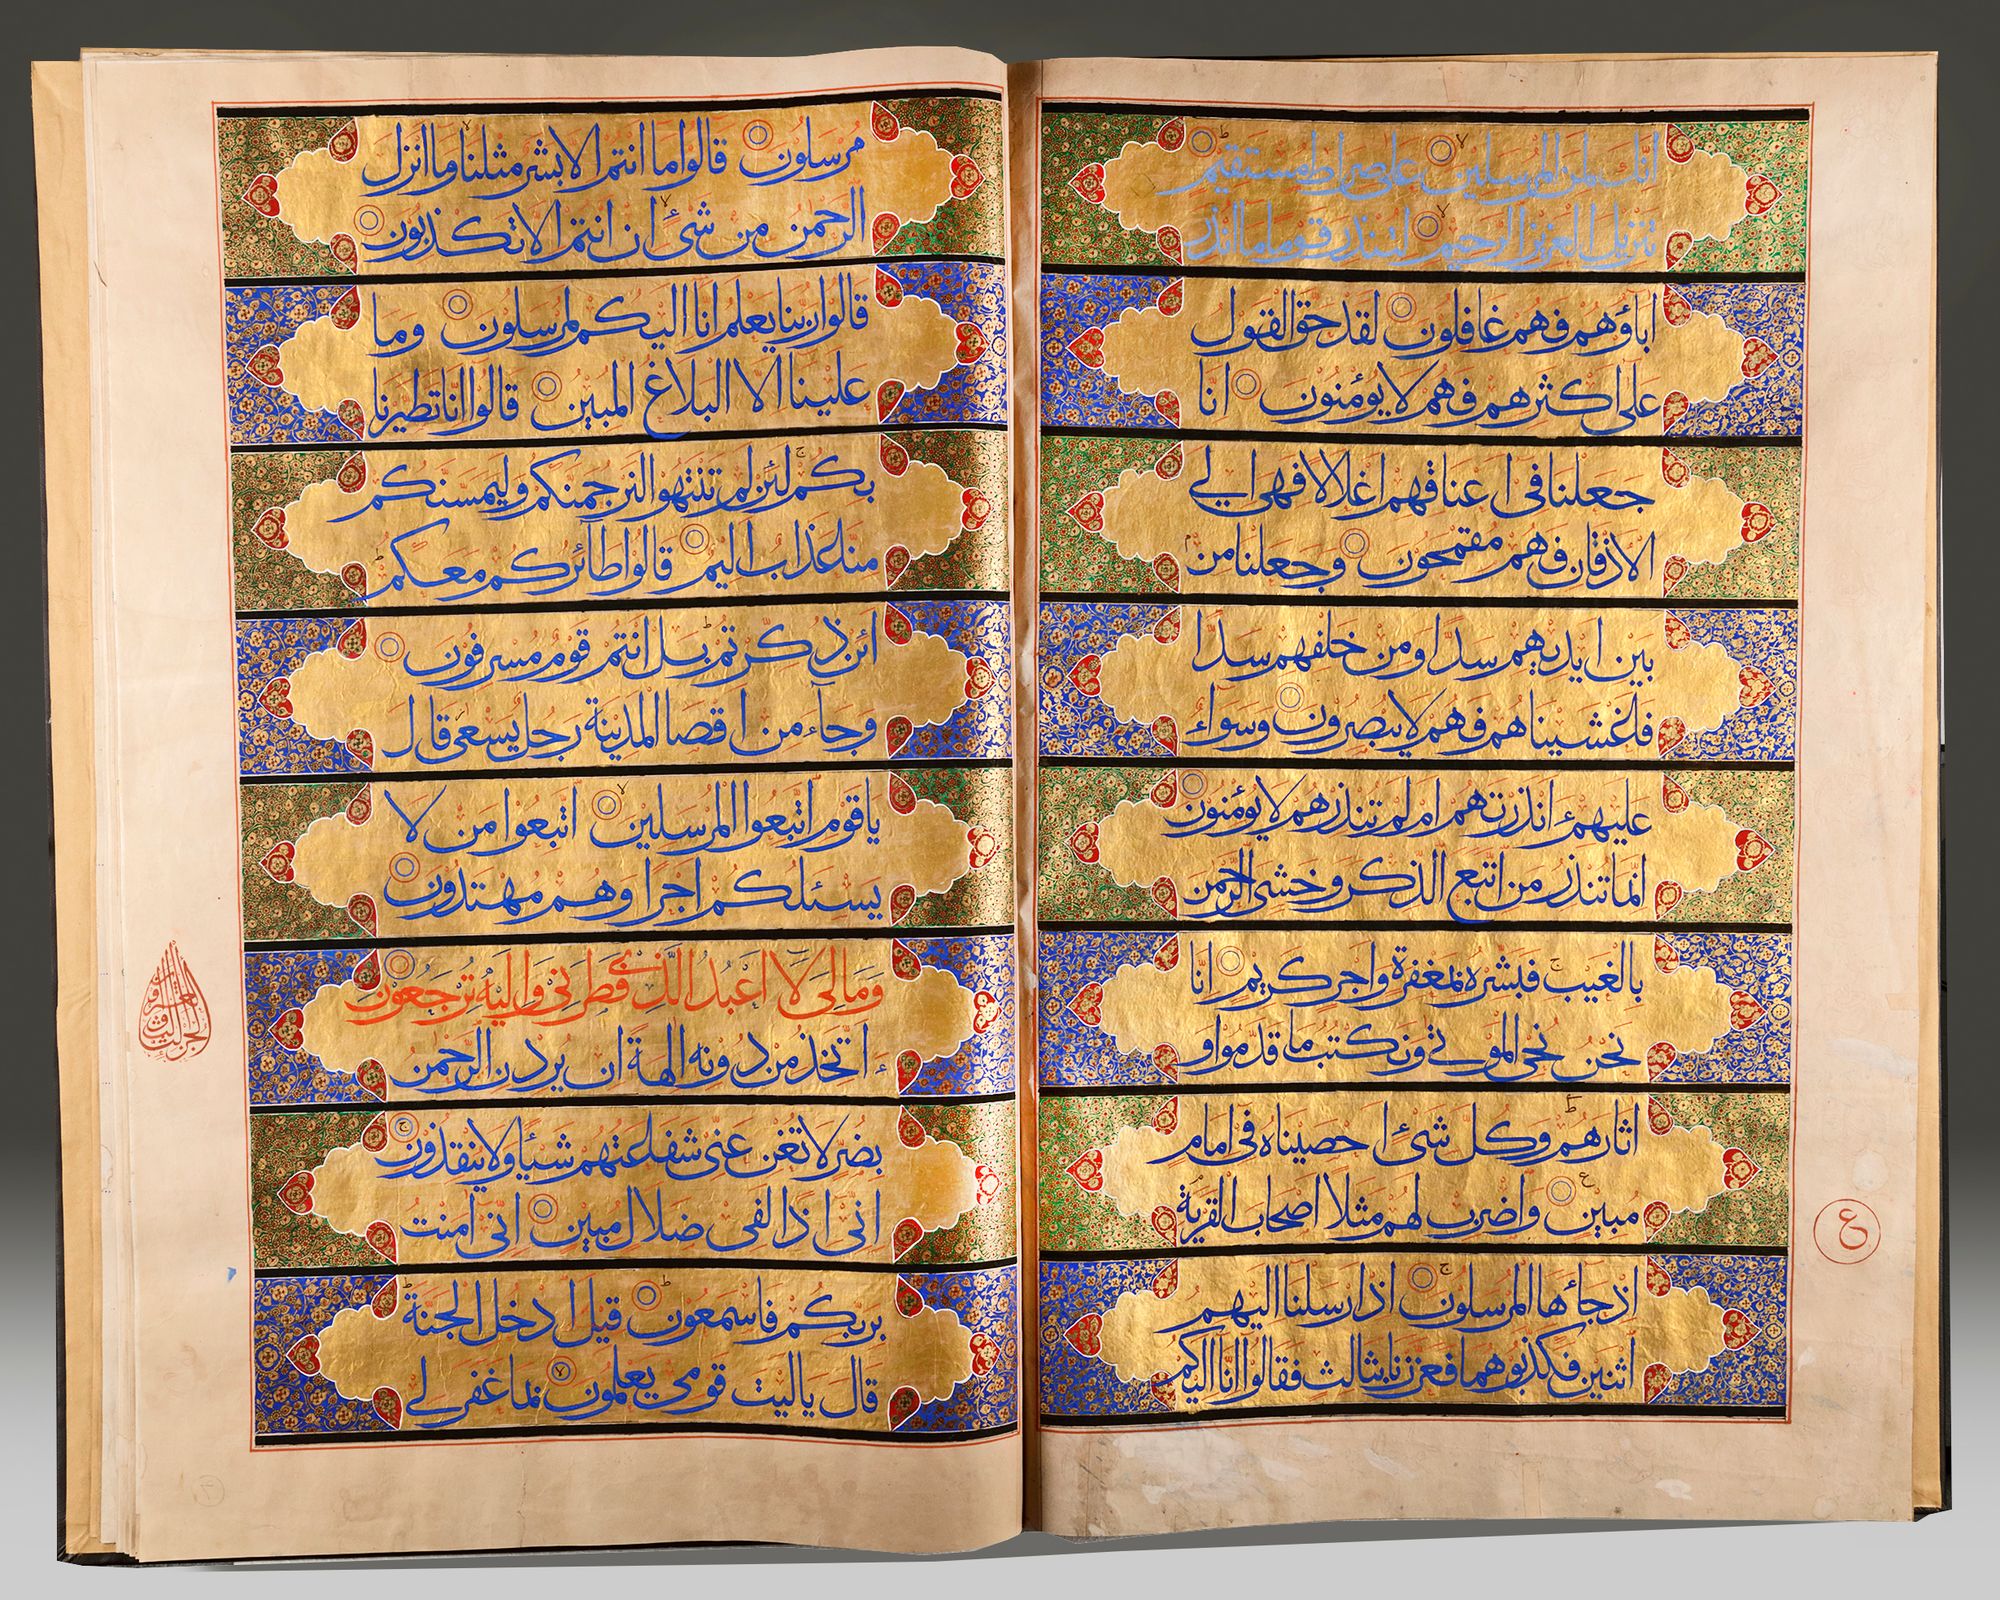 انّك لمن المرسلين على صراط مستقيم
تنزيل العزيز الرحيم لتنذر قوما ما انذر
اباؤهم فهم غافلون لقد حق القول
على اكثرهم فهم لا يؤمنون انا
جعلنا في اعناقهم اغلالا فهى الى
الاذقان فهم مقمحون وجعلنا من
بين ايديهم سدّا ومن خلفهم سدّا
فاغشيناهم فهم لا يبصرون وسواء
عليهم ءانذرتهم ام لم تنذرهم لا يؤمنون
انما تنذر من اتّبع الذكر وخشى الرحمن
بالغيب فبشّره بمغفرة واجر كريم انّا
نحن نحى الموتى ونكتب ما قدّموا و
اثارهم وكل شىء احصيناه فى امام
مبين واضرب لهم مثلا اصحاب القرية
اذ جاءها المرسلون اذ ارسلنا اليهم
اثنين فكذبوهما فعززنا بثالث فقالوا انّا اليكم
ع
مرسلون قالوا ما انتم الا بشر مثلنا وما انزل
الرحمن من شىء ان انتم الا تكذبون
قالوا ربنا يعلم انّا اليكم لمرسلون وما
علينا الّا البلاغ المبين قالوا انّا تطيرنا
بكم لئن لم تنتهوا لنرجمنكم وليمسّنكم
منّا عذاب اليم قالوا طائركم معكم
ائن ذكّرتم بل انتم قوم مسرفون
وجاء من اقصا المدينة رجل يسعى قال
يا قوم اتّبعوا المرسلين اتبعوا من لا
يسئلكم اجرا وهم مهتدون
وَمالى لا اعبد الّذى فطرنى واليه ترجعون
ءاتّخذ من دونه الهة ان يردن الرحمن
بضرّ لا تغن عنّى شفاعتهم شيئا ولا ينقذون
انّى اذا لفى ضلال مبين انّى امنت
بربّكم فاسمعون قيل ادخل الجنّة
قال يا ليت قومى يعلمون بما غفر لى